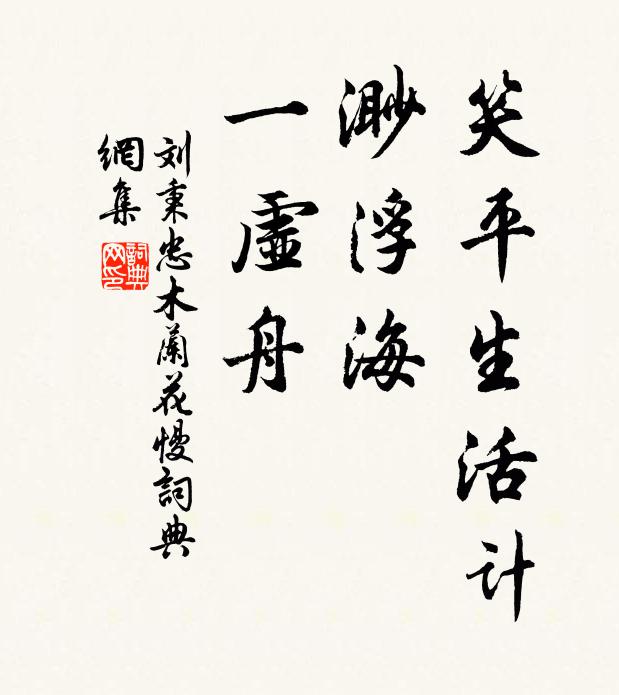 笑平生活计
渺浮海
一虚舟
刘秉忠木蘭花慢詞典
網集
詞典网印